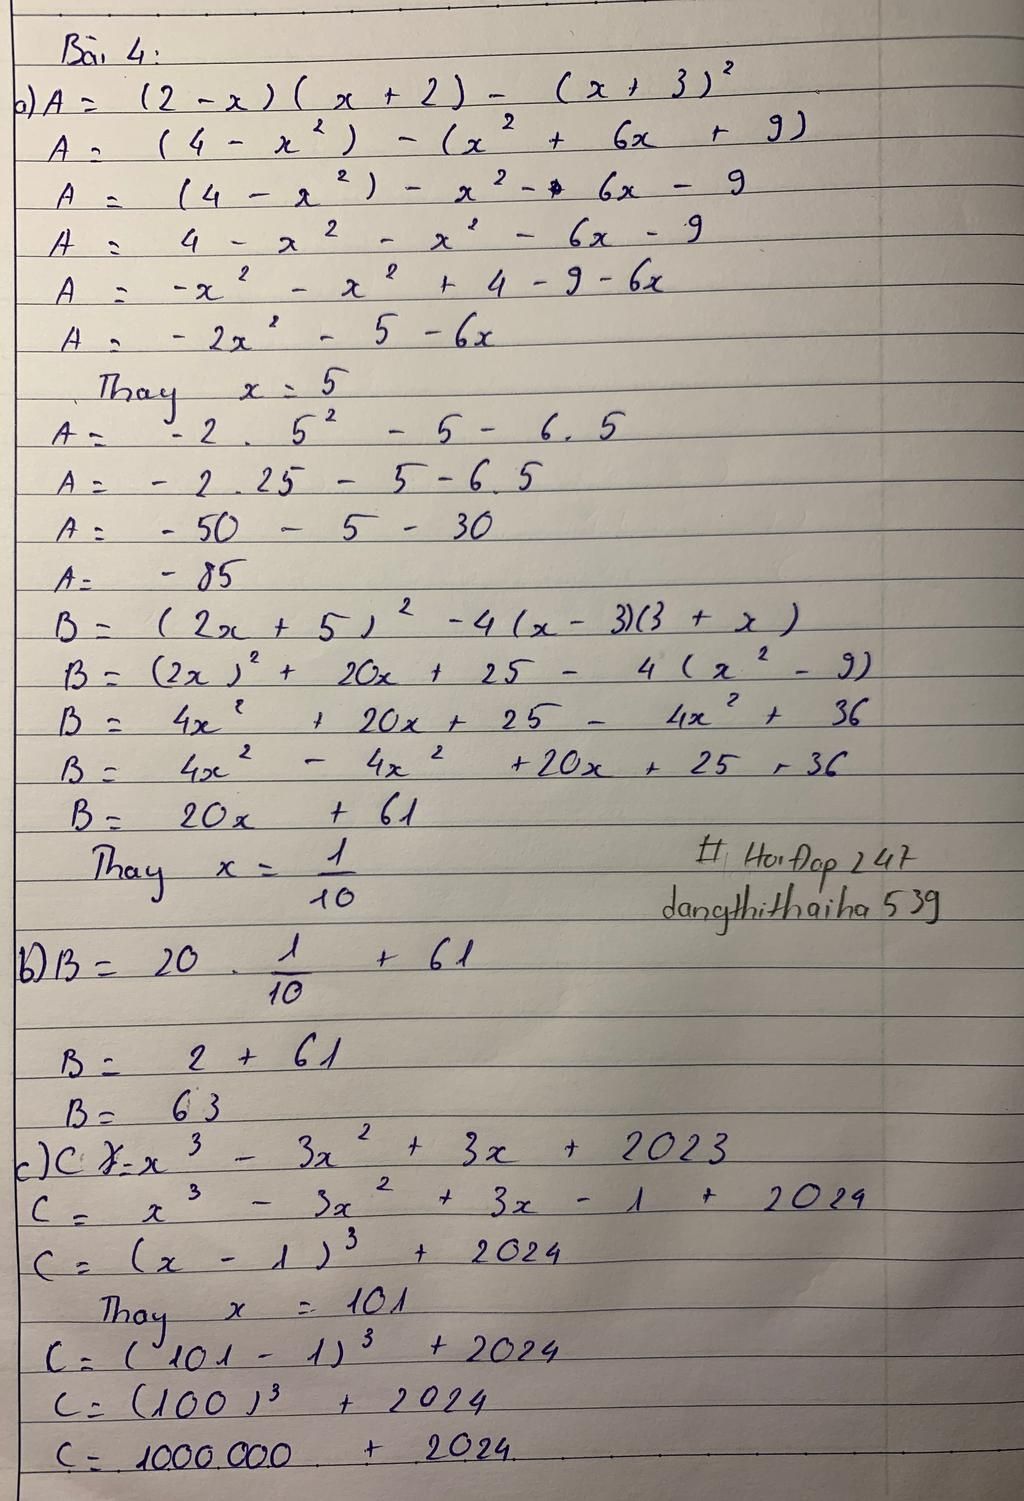 Bài 4:
a) A = (2 - x)(x + 2) - (x + 3)²
A = (4 - x²) - (x² + 6x + 9)
A = (4 - x²) - x² - 6x - 9
A = 4 - x² - x² - 6x - 9
A = -x² - x² + 4 - 9 - 6x
A = -2x² - 5 - 6x
Thay x = 5
A = -2 . 5² - 5 - 6.5
A = -2.25 - 5 - 6.5
A = -50 - 5 - 30
A = -85
B = (2x + 5)² - 4(x - 3)(3 + x)
B = (2x)² + 20x + 25 - 4(x² - 9)
B = 4x² + 20x + 25 - 4x² + 36
B = 4x² - 4x² + 20x + 25 + 36
B = 20x + 61
Thay x = 1/10
# HoiDap 247
dangthithaiha 539
b) B = 20 . 1/10 + 61
B = 2 + 61
B = 63
c) C = x³ - 3x² + 3x + 2023
C = x³ - 3x² + 3x - 1 + 2024
C = (x - 1)³ + 2024
Thay x = 101
C = (101 - 1)³ + 2024
C = (100)³ + 2024
C = 1000.000 + 2024